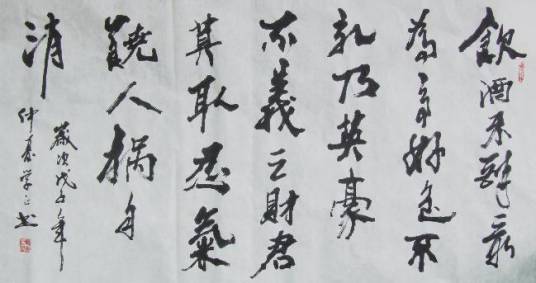 飲酒不醉最
為高好色不
亂乃英豪
不義之財君
莫取忍氣
饒人禍自
消
歲次戊子年
仲春学书